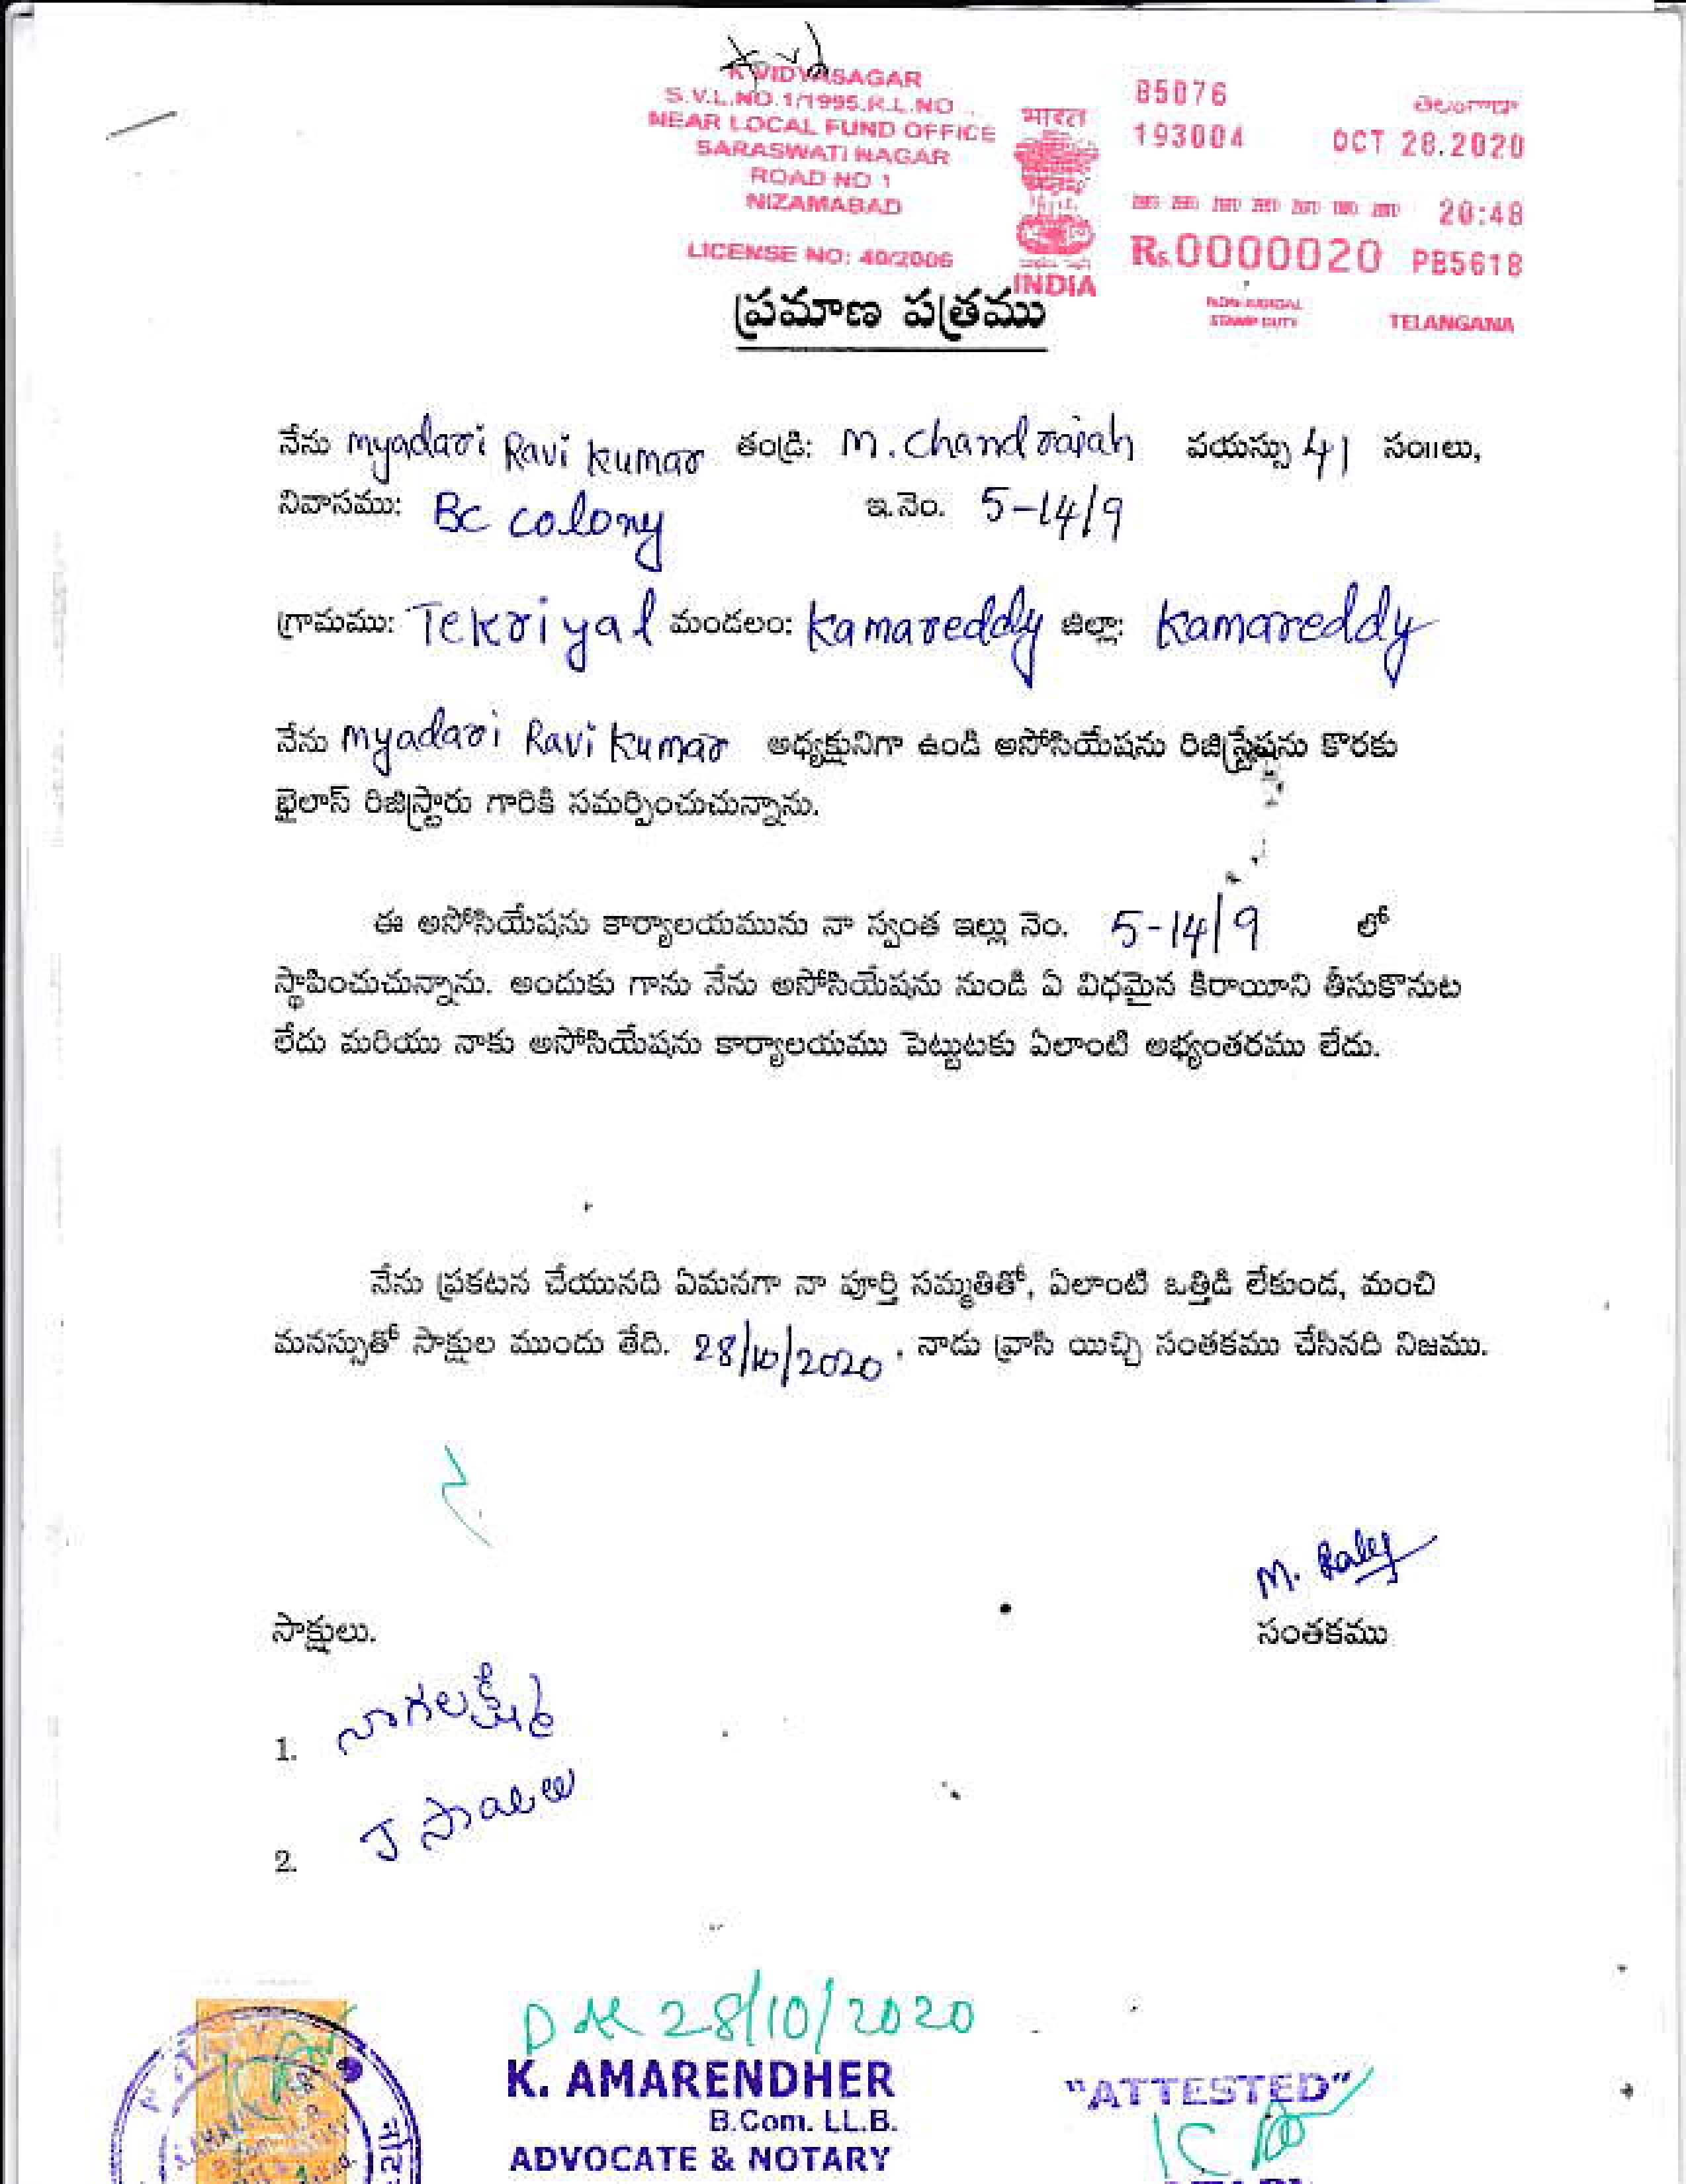 K VIDYASAGAR
S.V.L.NO.1/1995.R.L.NO
NEAR LOCAL FUND OFFICE
SARASWATI NAGAR
ROAD NO 1
NIZAMABAD
LICENSE NO: 40/2006
भारत
INDIA
85076 తెలంగాణ
193004 OCT 28.2020
20:48
Rs.0000020 PB5618
NON JUDICIAL
STAMP DUTY TELANGANA
ప్రమాణ పత్రము
నేను myadari Ravi kumar తండ్రి: M. Chandraiah వయస్సు 41 సం॥లు,
నివాసము: Bc colony ఇ.నెం. 5-14/9
గ్రామము: Tekriyal మండలం: kamareddy జిల్లా: kamareddy
నేను myadari Ravi kumar అధ్యక్షునిగా ఉండి అసోసియేషను రిజిస్ట్రేషను కొరకు
బైలాస్ రిజిస్ట్రారు గారికి సమర్పించుచున్నాను.
ఈ అసోసియేషను కార్యాలయమును నా స్వంత ఇల్లు నెం. 5-14/9 లో
స్థాపించుచున్నాను. అందుకు గాను నేను అసోసియేషను నుండి ఏ విధమైన కిరాయిని తీసుకొనుట
లేదు మరియు నాకు అసోసియేషను కార్యాలయము పెట్టుటకు ఏలాంటి అభ్యంతరము లేదు.
నేను ప్రకటన చేయునది ఏమనగా నా పూర్తి సమ్మతితో, ఏలాంటి ఒత్తిడి లేకుండ, మంచి
మనస్సుతో సాక్షుల ముందు తేది. 28/10/2020, నాడు వ్రాసి యిచ్చి సంతకము చేసినది నిజము.
సాక్షులు. సంతకము
1. నాగలక్ష్మి
2. J
28/10/2020
K. AMARENDHER
B.Com. LL.B.
ADVOCATE & NOTARY
"ATTESTED"